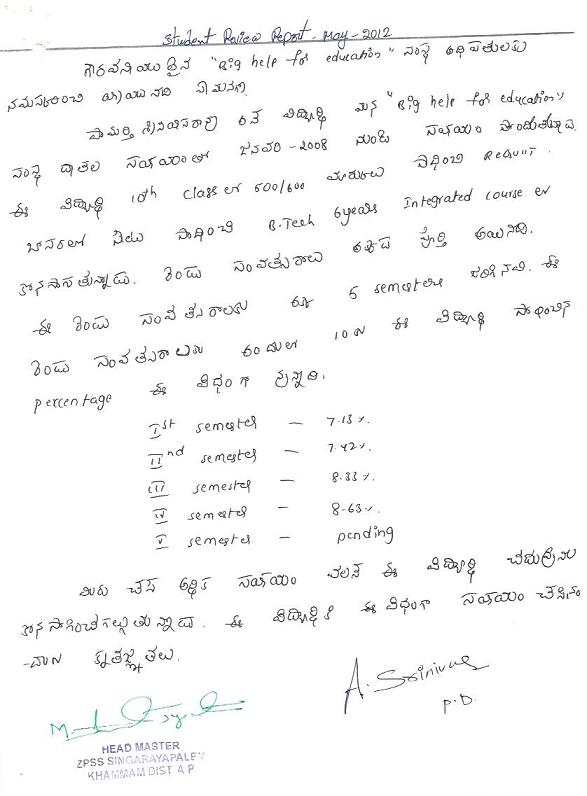 Student Review Report - May - 2012
గౌరవనీయులైన "Big help for education" సంస్థ అధిపతులకు
నమస్కరించి వ్రాయునది ఏమనగా.
శ్రీనివాసరావు అనే విద్యార్థి మన "Big help for education"
సంస్థ దాతల సహాయంతో జనవరి - 2008 నుండి సహాయం పొందుతున్నాడు.
ఈ విద్యార్థి 10th class లో 600/600 మార్కులు సాధించి
బాసరలో సీటు సాధించి B.Tech 6years Integrated course ను
కొనసాగిస్తున్నాడు. రెండు సంవత్సరాలు అక్కడ పూర్తి అయినది.
ఈ రెండు సంవత్సరాలలో 5 semesterలు జరిగినవి. ఈ
రెండు సంవత్సరాలలో ఈ విద్యార్థి సాధించిన
percentage ఈ విధంగా వున్నది.
Ist semester - 7.13%.
IInd semester - 7.42%.
III semester - 8.33%.
IV semester - 8.63%.
V semester - pending
మీరు చేసే ఆర్థిక సహాయం వలన ఈ విద్యార్థి చదువును
కొనసాగించగల్గుతున్నాడు. ఈ విద్యార్థికి ఈ విధంగా సహాయం చేసినం
-దుకు కృతజ్ఞతలు.
A. Srinivas
P.D.
HEAD MASTER
ZPSS SINGARAYAPALEM
KHAMMAM DIST A P